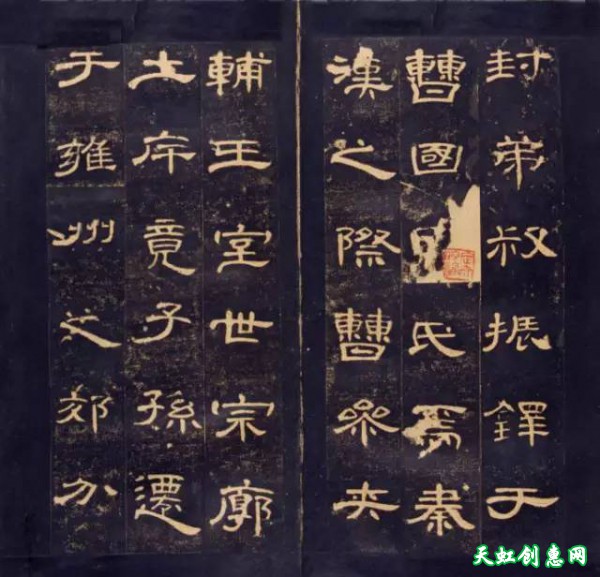 封弟叔振鐸于
曹國氏焉秦
漢之際曹參夾
輔王室世宗廓
土斥竟子孫遷
于雍州之郊分
天虹创惠网